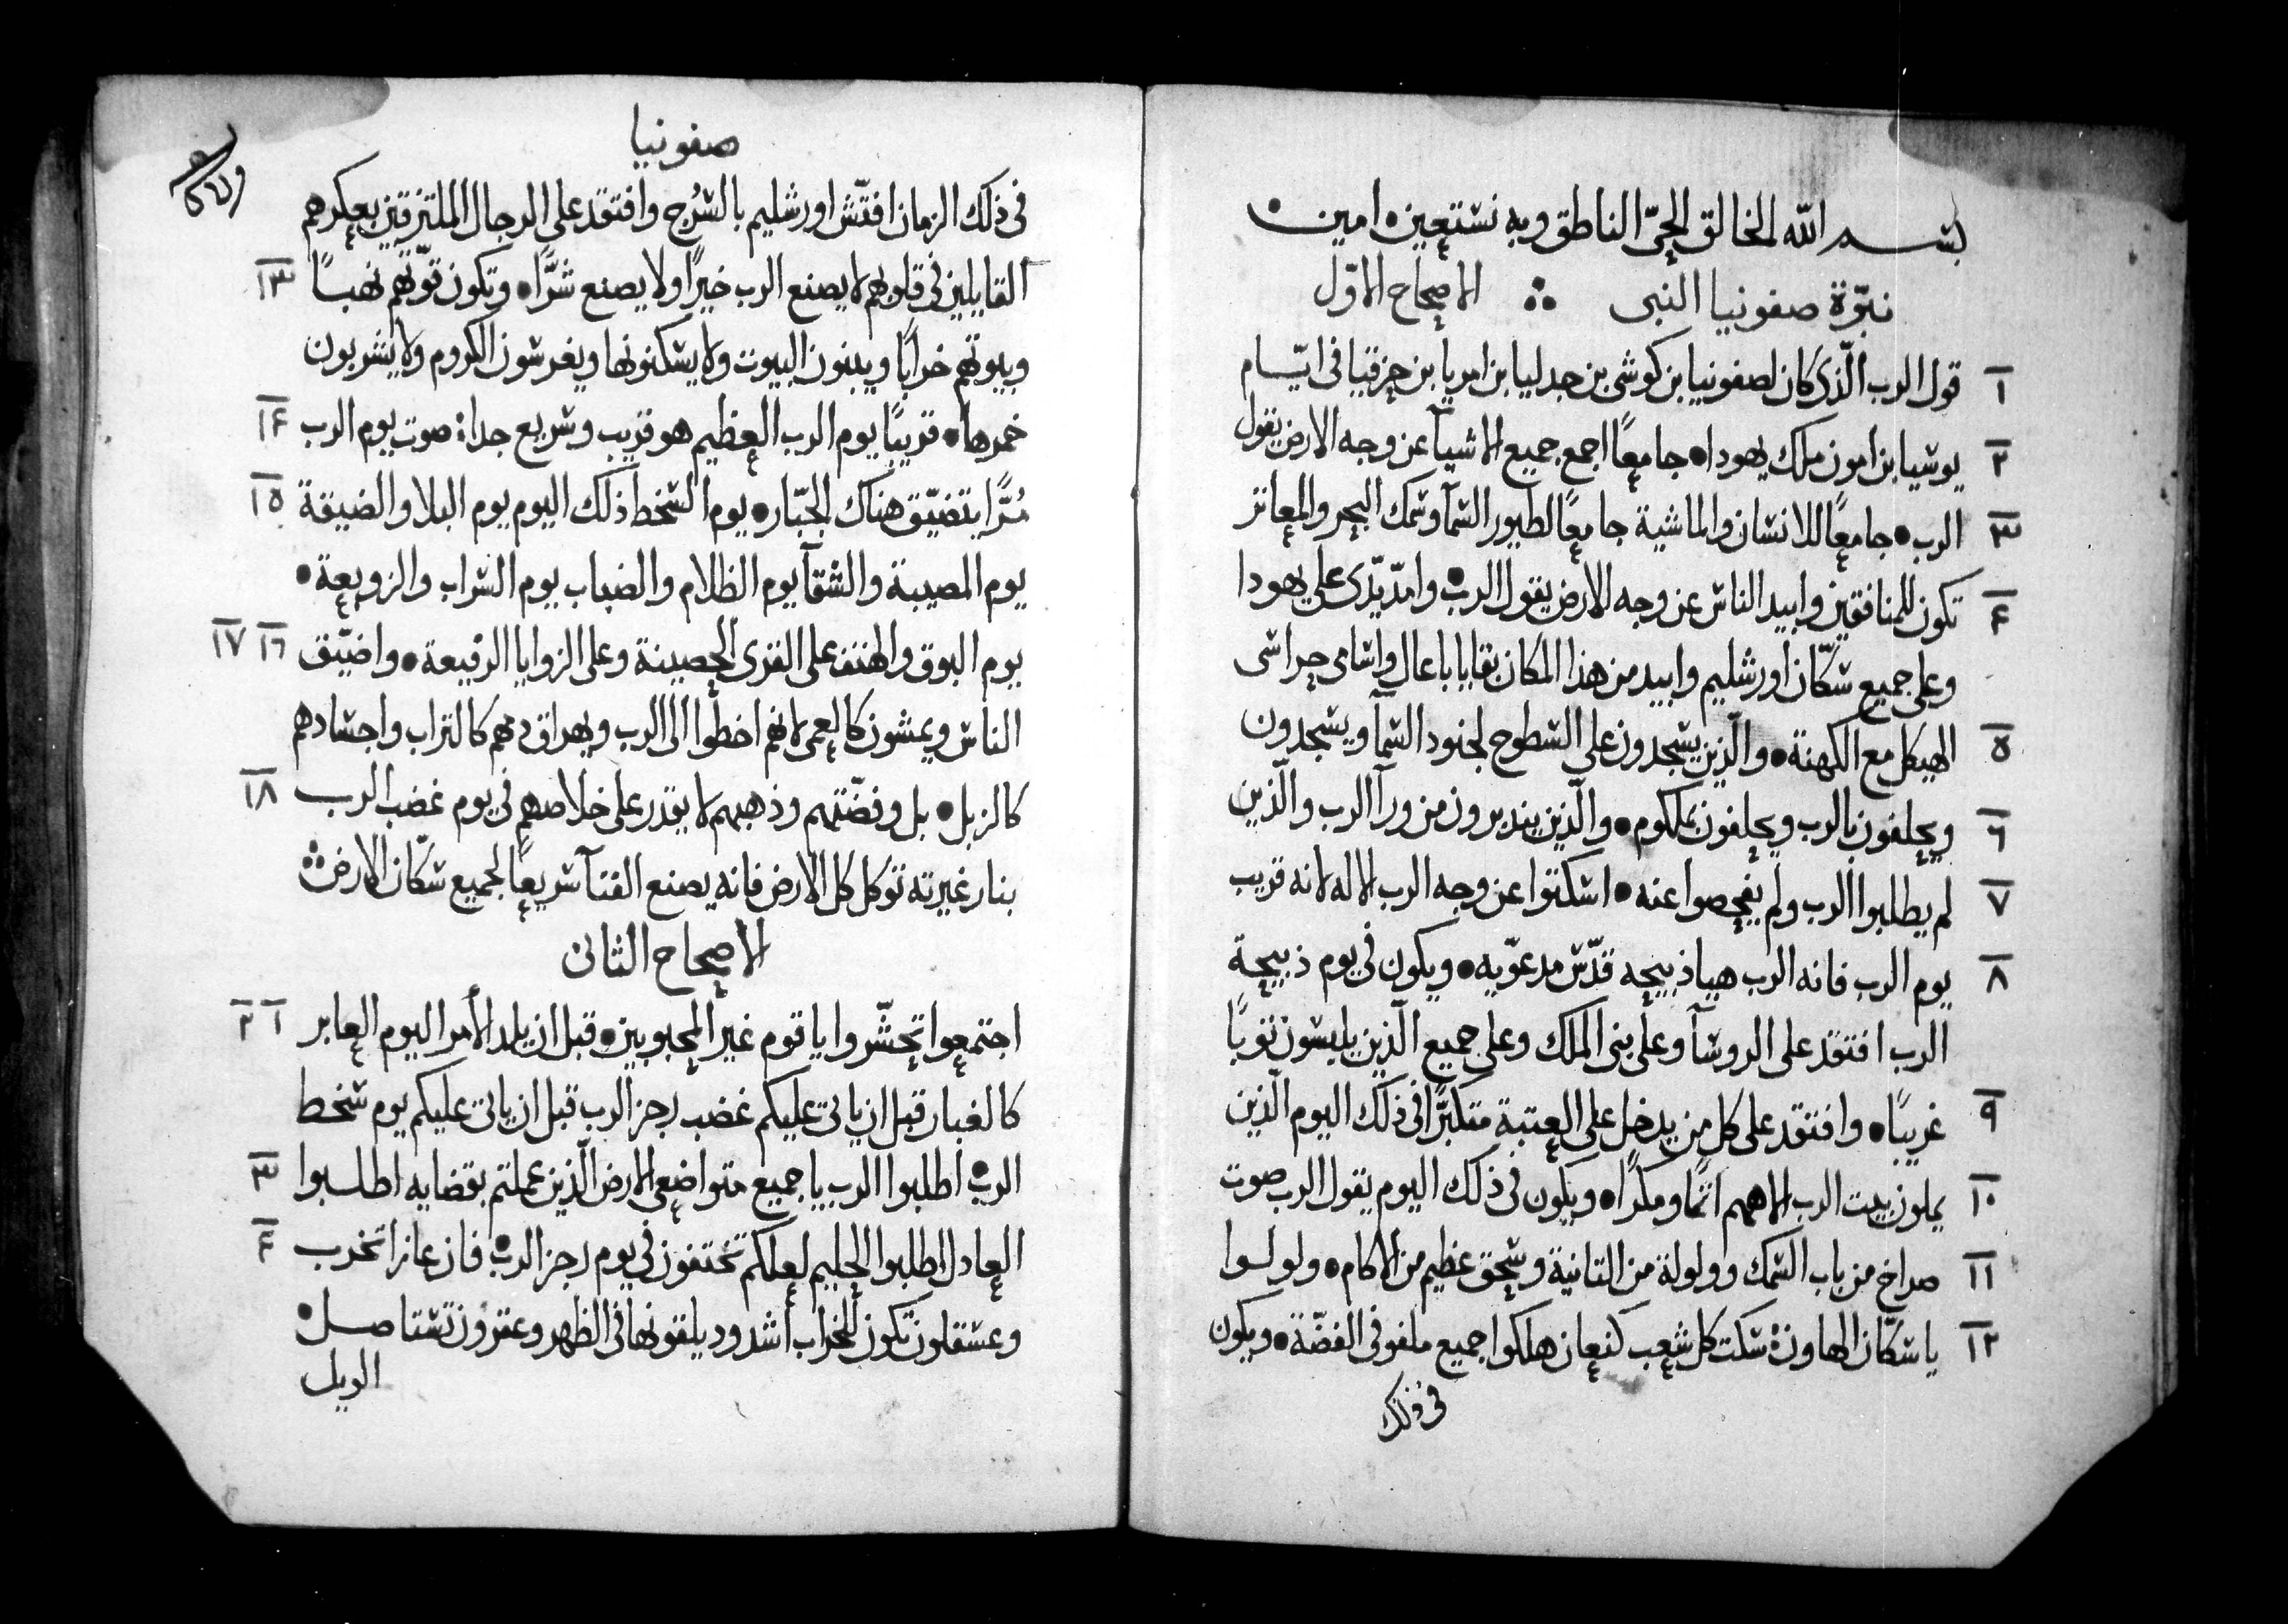 بسم الله الخالق الحيّ الناطق وبه نستعين امين
نبوّة صفونيا النبى ∴ الاصحاح الاوّل
١ قول الرب الّذى كان لصفونيا بن كوشى بن جدليا بن امريا بن حزقيا فى ايّام
٢ يوشيا بن امون ملك يهودا • جامعًا اجمع جميع الاشيآ عن وجه الارض يقول
٣ الرب • جامعًا للانسان والماشية جامعًا لطيور السمآ وسمك البحر والمعاثر
٤ تكون للمنافقين وابيد الناس عن وجه الارض يقول الرب • وامدّ يدّى على يهودا
وعلى جميع سكّان اورشليم وابيد من هذا المكان بقايا باعال واسامى حراسى
٥ الهيكل مع الكهنة • والّذين يسجدون على السطوح لجنود السمآ ويسجدون
٦ ويحلفون بالرب ويحلفون بملكوم • والّذين يندبرون من ورآ الرب والّذين
٧ لم يطلبوا الرب ولم يفحصوا عنه • اسكتوا عن وجه الرب الاله لانه قريب
٨ يوم الرب فانه الرب هيا ذبيحه قدّس مدعوّيه • ويكون فى يوم ذبيحة
الرب افتقد على الروسآ وعلى بنى الملك وعلى جميع الّذين يلبسون ثوبًا
٩ غريبًا • وافتقد على كل من يدخل على العتبة متكبّرًا فى ذلك اليوم الّذين
١٠ يملون بيت الرب الاههم اثمًا ومكرًا • ويكون فى ذلك اليوم يقول الرب صوت
١١ صراخ من باب السمك وولولة من الثانية وسحق عظيم من الاكام • ولولوا
١٢ يا سكّان الهاون سكت كل شعب كنعان هلكوا جميع ملفوفى الفضّة • ويكون
فى ذلك
صفونيا
فى ذلك الزمان افتّش اورشليم بالسُرُج وافتقد على الرجال الملتزقين بعكرهم
القايلين فى قلوبهم لا يصنع الرب خيرًا ولا يصنع شرًّا • وتكون قوّتهم نهبًا ١٣
وبيوتهم خرابًا ويبنون البيوت ولا يسكنونها ويغرسون الكروم ولا يشربون
خمرها • قريبًا يوم الرب العظيم هو قريب وسريع جدا صوت يوم الرب ١٤
مُرًّا يتضيّق هناك الجبّار • يوم السخط ذلك اليوم يوم البلا والضيقة ١٥
يوم المصيبة والشقآ يوم الظلام والضباب يوم السراب والزوبعة •
يوم البوق والهتف على القرى الحصينة وعلى الزوايا الرفيعة • واضيّق ١٦ ١٧
الناس ويمشون كالعمى لانهم اخطوا الى الرب ويهراق دمهم كالتراب واجسادهم
كالزبل • بل وفضّتهم وذهبهم لا يقدر على خلاصهم فى يوم غضب الرب ١٨
بنار غيرته توكل كل الارض فانه يصنع الفنآ سريعًا لجميع سكّان الارض
الاصحاح الثانى
اجتمعوا تحشّروا يا قوم غير المحبوبين • قبل ان يلد الأمر اليوم العابر ١ ٢
كالغبار قبل ان ياتى عليكم غضب رجز الرب قبل ان ياتى عليكم يوم سخط
الرب • اطلبوا الرب يا جميع متواضعى الارض الّذين عملتم بقضايه اطلبوا ٣
العادل اطلبوا الحليم لعلكم تختفون فى يوم رجز الرب • فان عازا تخرب ٤
وعسقلون تكون للخراب اشدود يلقونها فى الظهر وعقرون تستاصل •
الويل